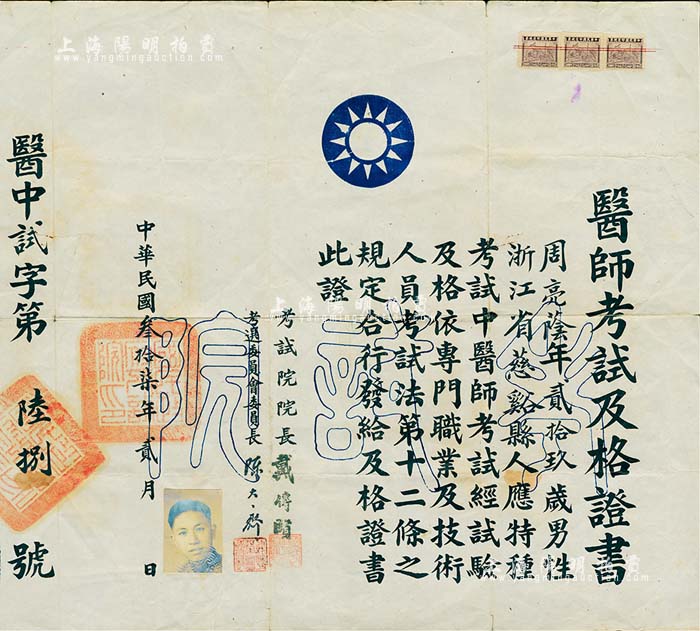 醫師考試及格證書
周亮蔭年貳拾玖歲男性
浙江省慈谿縣人應特種
考試中醫師考試經試驗
及格依專門職業及技術
人員考試法第十二條之
規定合行發給及格證書
此證
考試院院長戴傳賢
考選委員會委員長陳大齊
中華民國叁拾柒年貳月 日
醫中試字第 陸捌 號
上海陽明拍賣
www.yangmingauction.com
上海陽明拍賣
www.yangmingauction.com